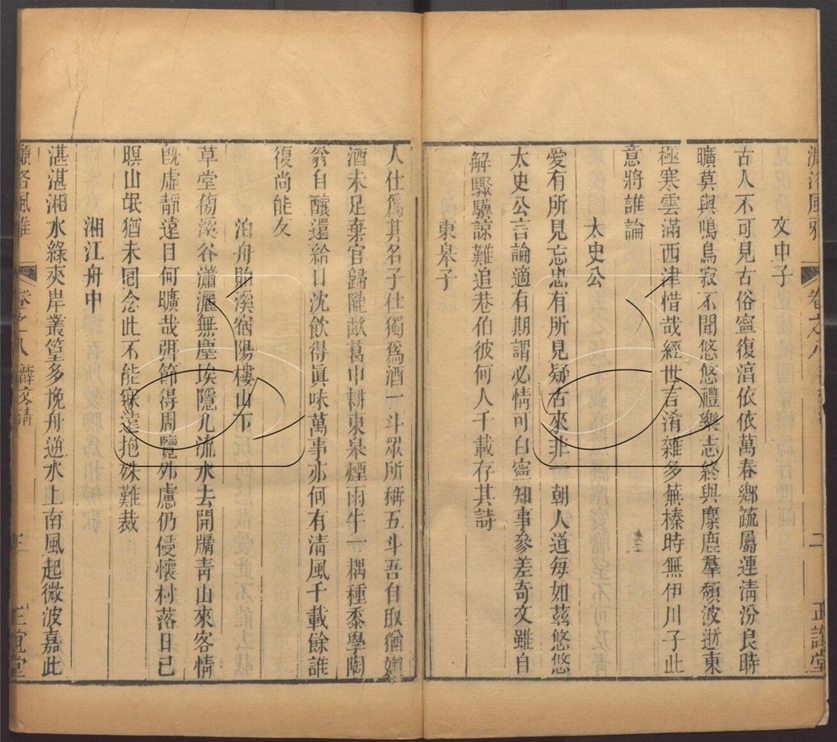 濂洛風雅 卷之八 二 正誼堂
文中子
古人不可見古俗寧復湻依依萬春鄉疏屬連清汾良時
曠莫與鳴鳥寂不聞悠悠禮樂志終與麋鹿羣頹波逝東
極寒雲滿西津惜哉經世言淆雜多蕪榛時無伊川子此
意將誰論
太史公
愛有所見忘忠有所見疑古來非一朝人道每如茲悠悠
太史公言論適有期謂必情可白寧知事參差奇文雖自
解驂驥諒難追巷伯彼何人千載存其詩
東皋子
人仕爲其名子仕獨爲酒一斗眾所稱五斗吾自取猶嫌
酒未足棄官歸隴畝葛巾耕東皋煙雨牛一耦種黍學陶
翁自釀還給口沈飲得眞味萬事亦何有清風千載餘誰
復尚能友
泊舟貽溪宿陽樓山下
草堂傍溪谷瀟灑無塵埃隱几流水去開牖青山來客情
旣虛靜遠目何曠哉弭節得周覽外慮仍侵懷村落日已
暝山氓猶未回念此不能寐達抱殊難裁
湘江舟中
湛湛湘水綠夾岸叢篁多挽舟遡水上南風起微波嘉此
濂洛風雅 卷之八 薛文清 三 正誼堂